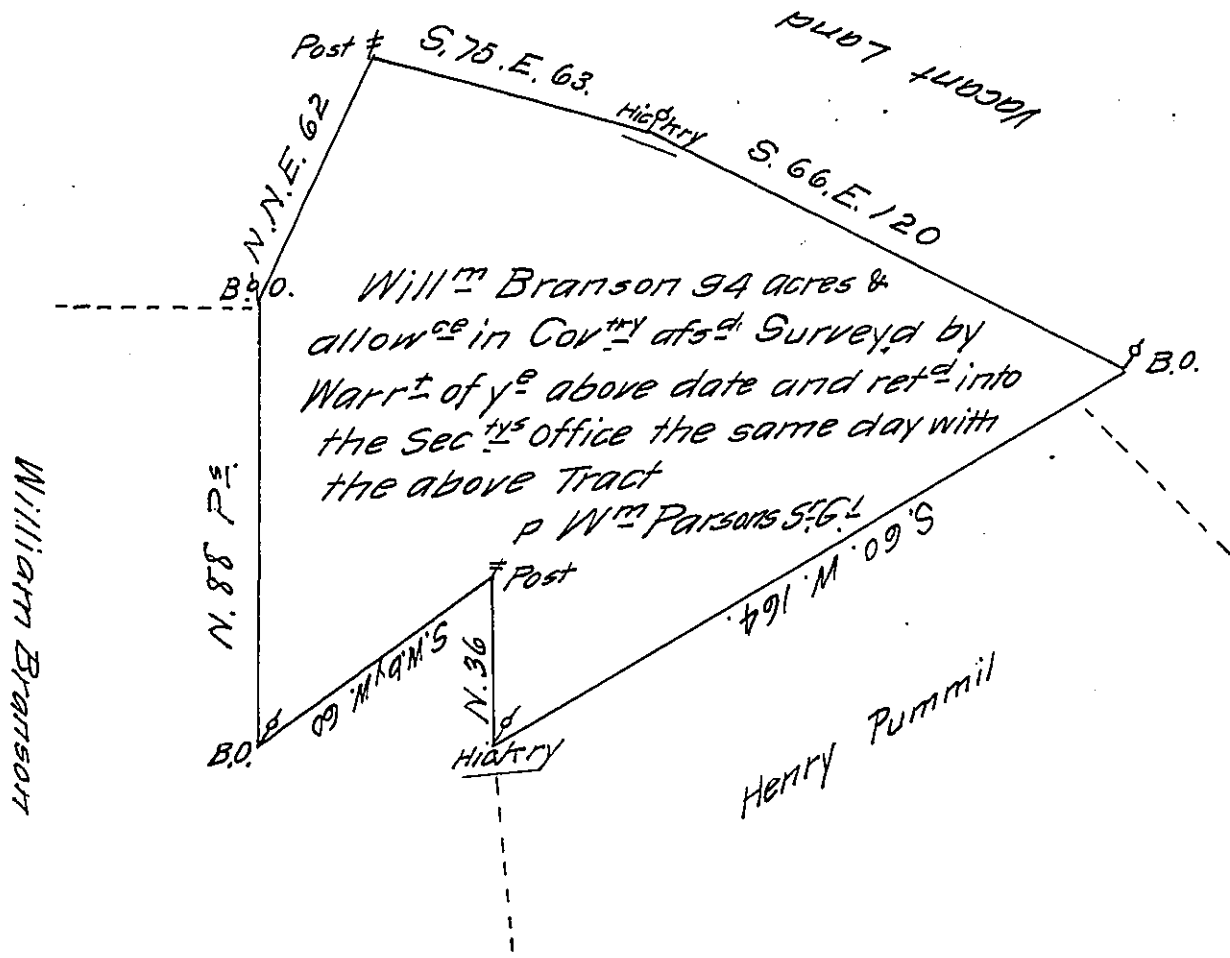 Vacant Land
Post
S. 75. E. 63.
Hickry
S. 66. E. 120
N. N. E. 62
B. O.
B. O.
Will^m Branson 94 acres &
allow^ce in Cov^try afs^d Survey,d by
Warr^t of y^e above date and ret^d into
the Sec^tys office the same day with
the above Tract
P W^m Parsons S^r. G^l
N. 88 P^s.
William Branson
Post
S. W. by W. 60
N. 36
S. 60. W. 164.
B.O.
Hickry
Henry Pummil